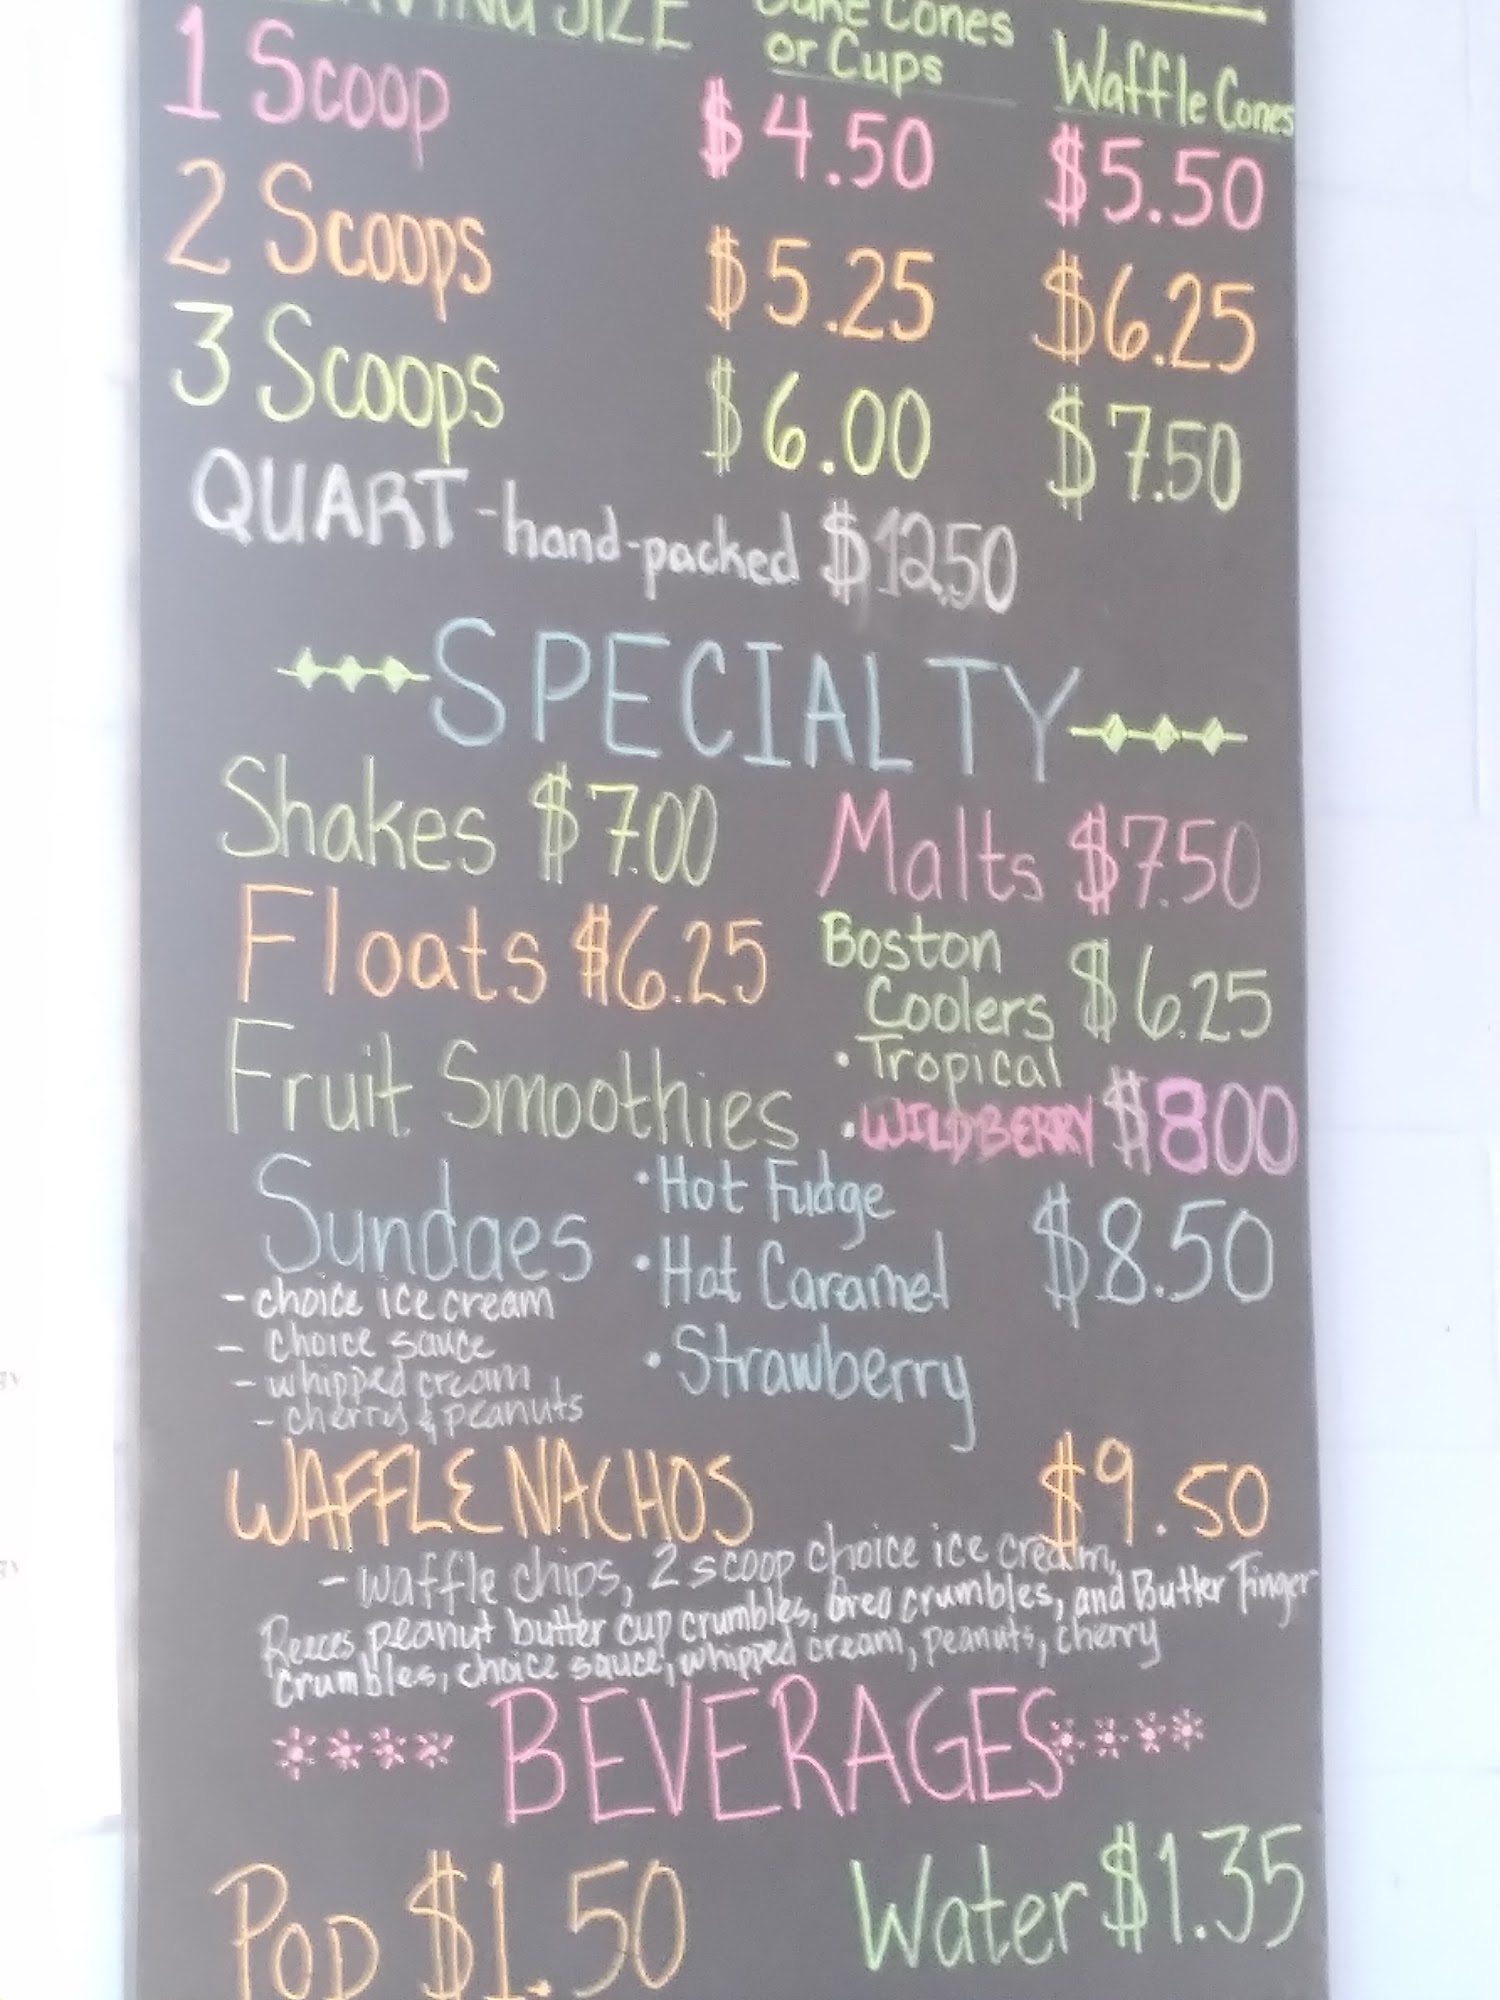 SIZE Cones
or Cups Waffle Cones
1 Scoop $4.50 $5.50
2 Scoops $5.25 $6.25
3 Scoops $6.00 $7.50
QUART - hand-packed $12.50
SPECIALTY
Shakes $7.00 Malts $7.50
Floats $6.25 Boston Coolers $6.25
Fruit Smoothies • Tropical
• WILDBERRY $8.00
Sundaes • Hot Fudge $8.50
• Hot Caramel
- choice ice cream
- choice sauce • Strawberry
- whipped cream
- cherry & peanuts
WAFFLE NACHOS $9.50
- waffle chips, 2 scoop choice ice cream,
Reeces peanut butter cup crumbles, oreo crumbles, and Butter Finger
crumbles, choice sauce, whipped cream, peanuts, cherry
BEVERAGES
Pop $1.50 Water $1.35